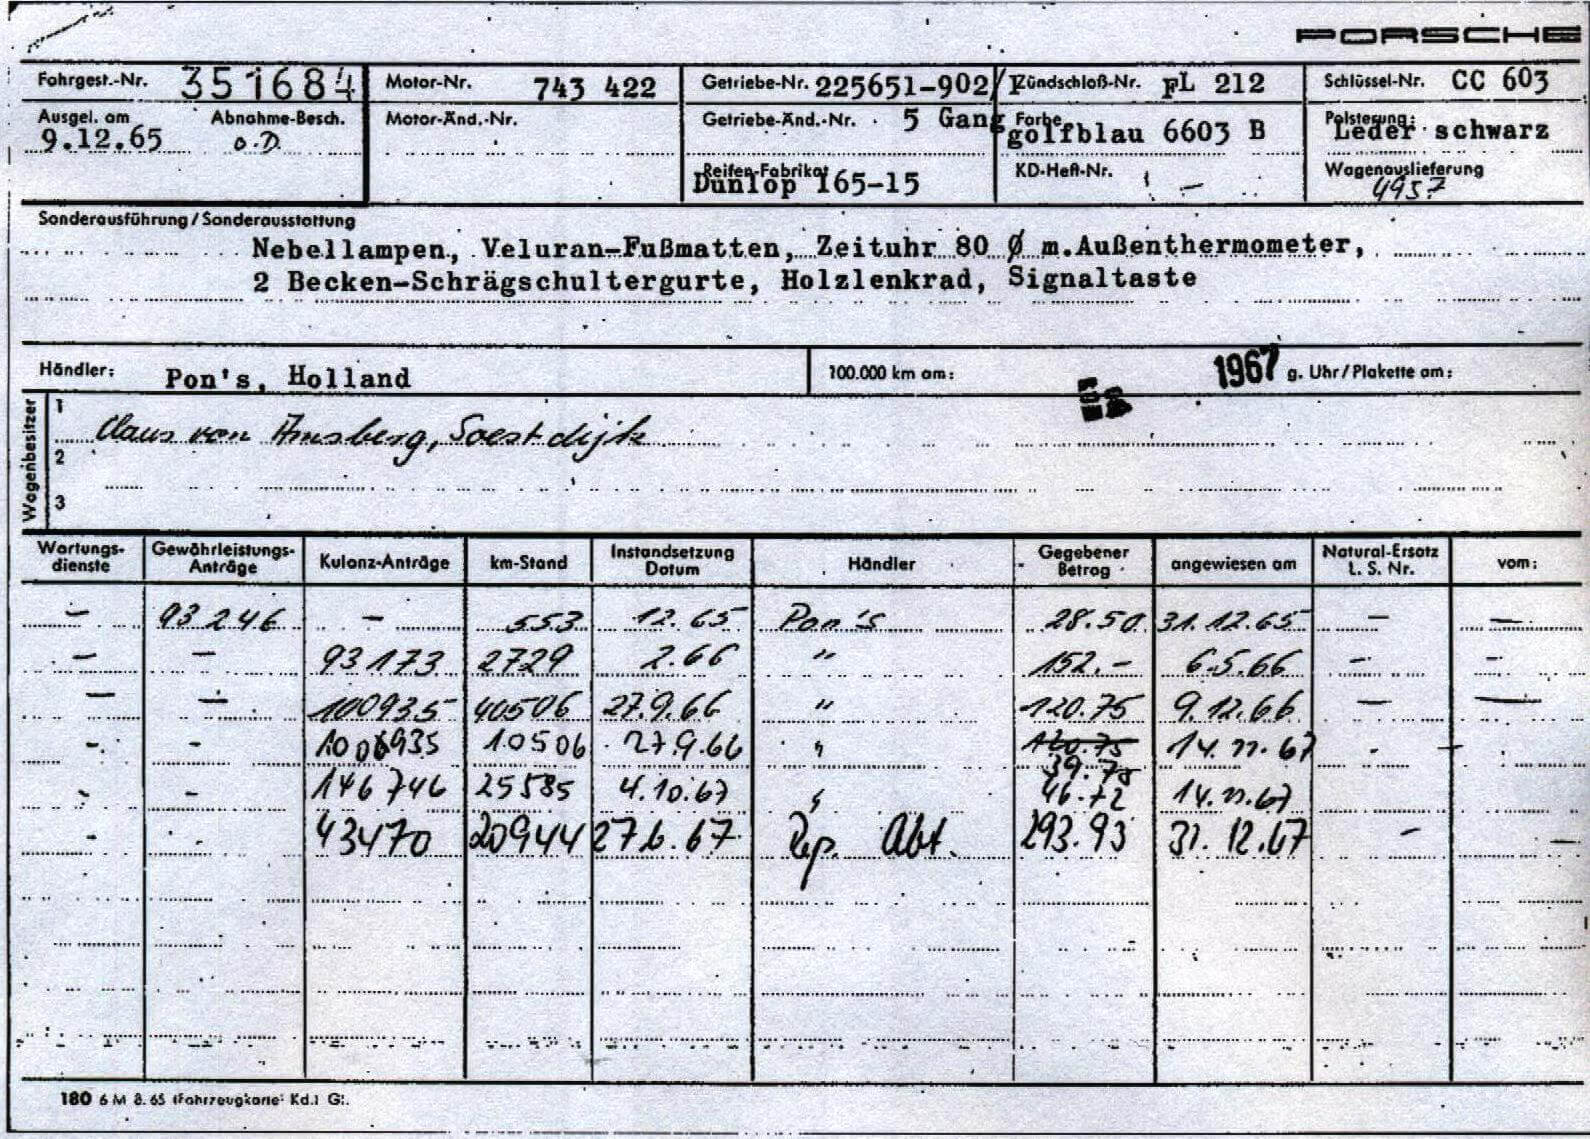 PORSCHE
Fahrgest.-Nr. 351684 Motor-Nr. 743 422 Getriebe-Nr. 225651-902/ Zündschloß-Nr. FL 212 Schlüssel-Nr. CC 603
Ausgel. am Abnahme-Besch. Motor-Änd.-Nr. Getriebe-Änd.-Nr. 5 Gang Farbe Polsterung:
9.12.65 o.D. golfblau 6603 B Leder schwarz
Reifen-Fabrikat KD-Heft-Nr. - Wagenauslieferung
Dunlop 165-15 4957
Sonderausführung/Sonderausstattung
Nebellampen, Veluran-Fußmatten, Zeituhr 80 Ø m.Außenthermometer,
2 Becken-Schrägschultergurte, Holzlenkrad, Signaltaste
Händler: Pon's, Holland 100.000 km am: 1967 g. Uhr/Plakette am:
Wagenbesitzer
1 Claus von Amsberg, Soestdijk
2
3
Wartungs- Gewährleistungs- Kulanz-Anträge km-Stand Instandsetzung Händler Gegebener angewiesen am Natural-Ersatz vom:
dienste Anträge Datum Betrag L. S. Nr.
- 93246 - 553 12.65 Pon's 28.50 31.12.65 - -
- - 93173 2729 2.66 " 152.- 6.5.66 - -
- - 100935 40506 27.9.66 " 120.75 9.12.66 - -
- - 100935 10506 27.9.66 " 120.75 14.11.67 - -
39.75
- - 146746 25585 4.10.67 " 46.72 14.11.67
- - 43470 20944 27.6.67 Rep. Abt. 293.93 31.12.67 - -
180 6 M 8.65 (Fahrzeugkarte) Kd.